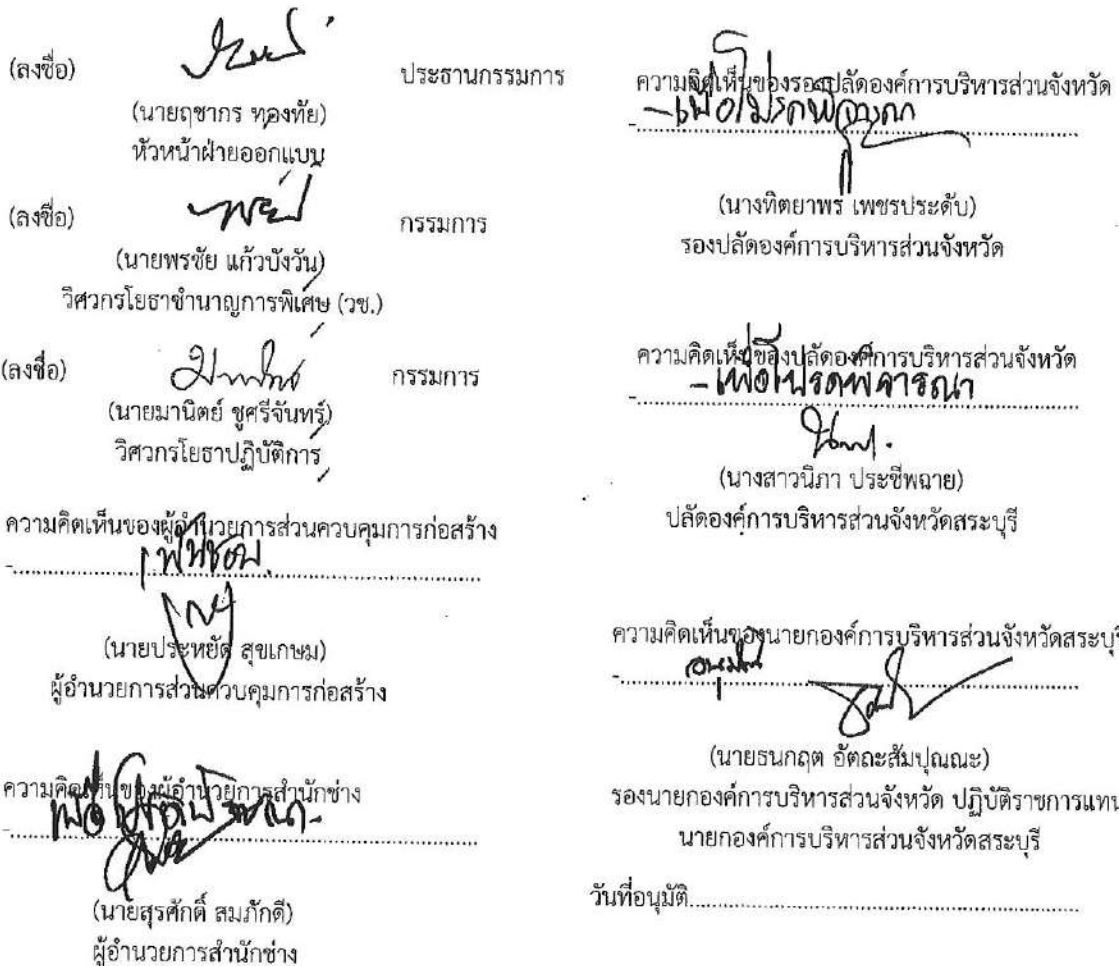 (ลงชื่อ) ประธานกรรมการ
(นายฤชากร ทองทัย)
หัวหน้าฝ่ายออกแบบ
(ลงชื่อ) กรรมการ
(นายพรชัย แก้วบังวัน)
วิศวกรโยธาชำนาญการพิเศษ (วช.)
(ลงชื่อ) กรรมการ
(นายมานิตย์ ชูศรีจันทร์)
วิศวกรโยธาปฏิบัติการ
ความคิดเห็นของผู้อำนวยการส่วนควบคุมการก่อสร้าง
(นายประหยัด สุขเกษม)
ผู้อำนวยการส่วนควบคุมการก่อสร้าง
ความคิดเห็นของผู้อำนวยการสำนักช่าง
(นายสุรศักดิ์ สมภักดี)
ผู้อำนวยการสำนักช่าง
ความคิดเห็นของรองปลัดองค์การบริหารส่วนจังหวัด
- เพื่อโปรดพิจารณา
(นางทิตยาพร เพชรประดับ)
รองปลัดองค์การบริหารส่วนจังหวัด
ความคิดเห็นของปลัดองค์การบริหารส่วนจังหวัด
- เพื่อโปรดพิจารณา
(นางสาวนิภา ประชีพฉาย)
ปลัดองค์การบริหารส่วนจังหวัดสระบุรี
ความคิดเห็นของนายกองค์การบริหารส่วนจังหวัดสระบุรี
อนุมัติ
(นายธนกฤต อัตถะสัมปุณณะ)
รองนายกองค์การบริหารส่วนจังหวัด ปฏิบัติราชการแทน
นายกองค์การบริหารส่วนจังหวัดสระบุรี
วันที่อนุมัติ